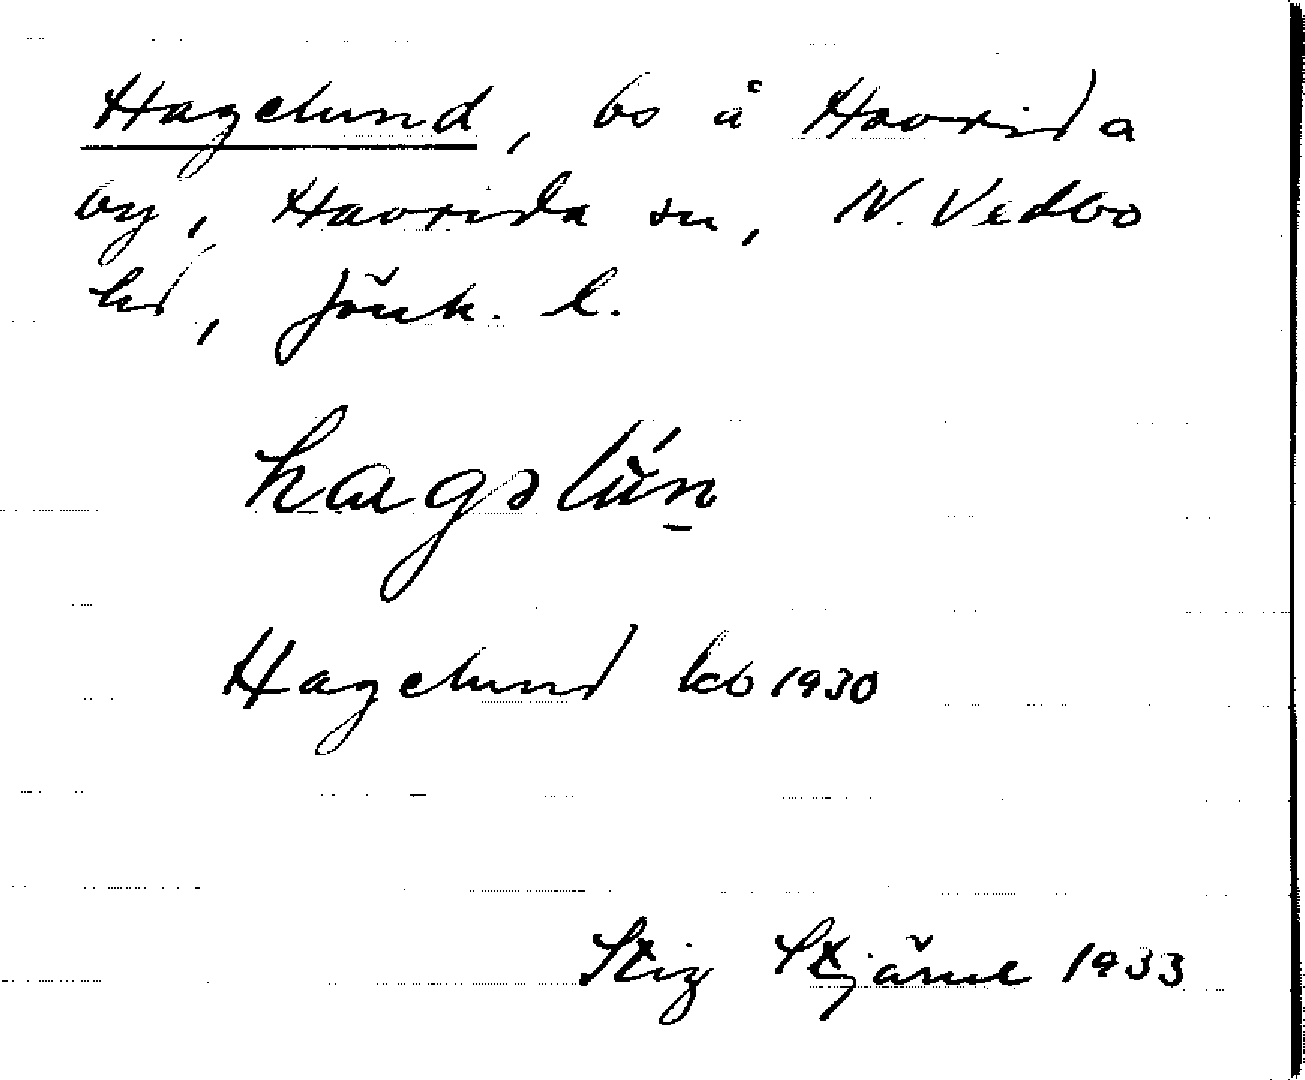 Hagelund, bs å Haurida
by, Haurida sn, N. Vedbo
hd, Jönk. l.
hagəlun
Hagelund kb 1930
Stig Stjärne 1933